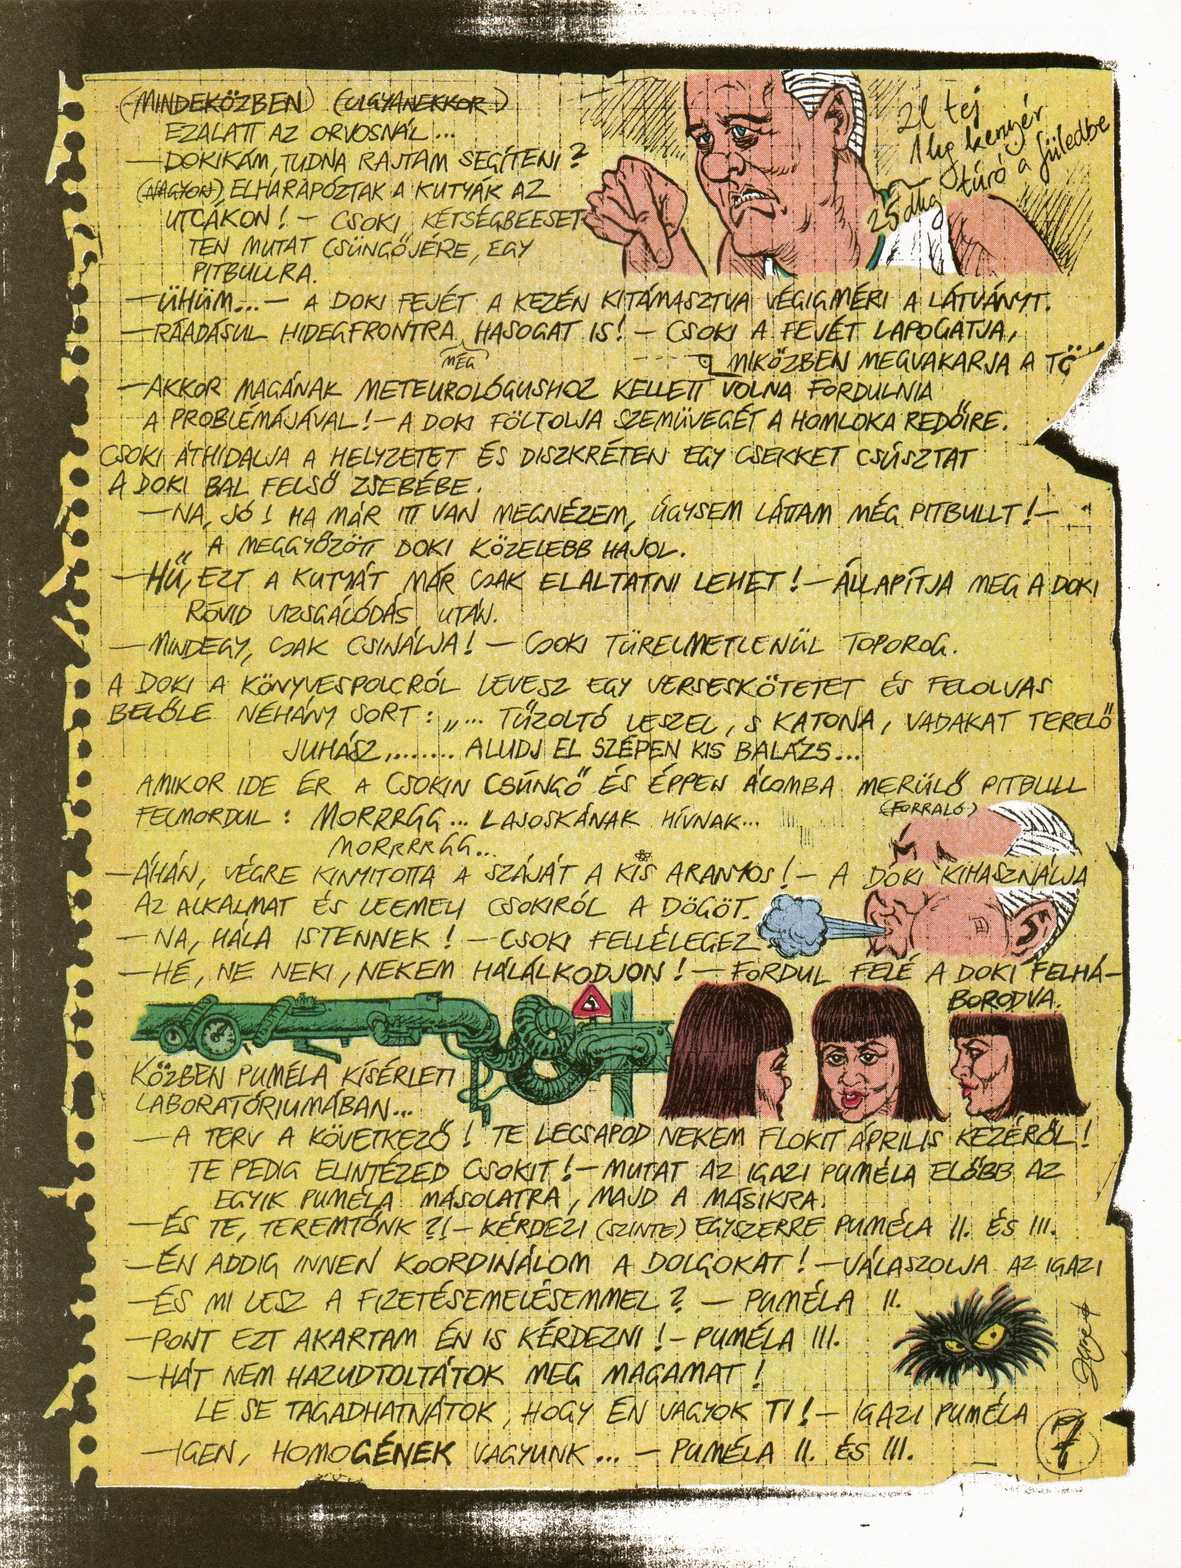 (MINDEKÖZBEN) (UGYANEKKOR)
EZALATT AZ ORVOSNÁL...
2l tej
1 kg kenyér
25 dkg túró a füledbe
—DOKIKÁM, TUDNA RAJTAM SEGÍTENI?
(NAGYON) ELHARAPÓZTAK A KUTYÁK AZ
UTCÁKON! — CSOKI KÉTSÉGBEESET
TEN MUTAT CSÜNGŐJÉRE, EGY
PITBULLRA.
—ÜHÜM...— A DOKI FEJÉT A KEZÉN KITÁMASZTVA VÉGIGMÉRI A LÁTVÁNYT.
—RÁADÁSUL HIDEGFRONTRA HASOGAT IS! — CSOKI A FEJÉT LAPOGATJA,
MIKÖZBEN MEGVAKARJA A TŐ
MÉG
—AKKOR MAGÁNAK METEUROLÓGUSHOZ KELLETT VOLNA FORDULNIA
A PROBLÉMÁJÁVAL! — A DOKI FÖLTOLJA SZEMÜVEGÉT A HOMLOKA REDŐIRE.
CSOKI ÁTHIDALJA A HELYZETET ÉS DISZKRÉTEN EGY CSEKKET CSÚSZTAT
A DOKI BAL FELSŐ ZSEBÉBE.
—NA, JÓ! HA MÁR ITT VAN MEGNÉZEM, ÚGYSEM LÁTTAM MÉG PITBULLT! —
A MEGGYŐZÖTT DOKI KÖZELEBB HAJOL.
—HŰ, EZT A KUTYÁT MÁR CSAK ELALTATNI LEHET! — ÁLLAPÍTJA MEG A DOKI
RÖVID VIZSGÁLÓDÁS UTÁN.
—MINDEGY, CSAK CSINÁLJA! — CSOKI TÜRELMETLENÜL TOPOROG.
A DOKI A KÖNYVESPOLCRÓL LEVESZ EGY VERSESKÖTETET ÉS FELOLVAS
BELŐLE NÉHÁNY SORT: „... TŰZOLTÓ LESZEL, S KATONA, VADAKAT TERELŐ
JUHÁSZ,........ ALUDJ EL SZÉPEN KIS BALÁZS...
AMIKOR IDE ÉR A CSOKIN CSÜNGŐ ÉS ÉPPEN ÁLOMBA MERÜLŐ PITBULL
FELMORDUL: MORRRGG... LAJOSKÁNAK HÍVNAK...
(FORRALÓ)
MORRRRGG...
—ÁHÁN, VÉGRE KINYITOTTA A SZÁJÁT A KIS ARANYOS! — A DOKI KIHASZNÁLJA
AZ ALKALMAT ÉS LEEMELI CSOKIRÓL A DÖGÖT.
—NA, HÁLA ISTENNEK! — CSOKI FELLÉLEGEZ.
—HÉ, NE NEKI, NEKEM HÁLÁLKODJON! — FORDUL FELÉ A DOKI FELHÁ—
BORODVA.
KÖZBEN PUMÉLA KÍSÉRLETI
LABORATÓRIUMÁBAN...
—A TERV A KÖVETKEZŐ! TE LECSAPOD NEKEM FLOKIT ÁPRILIS KEZÉRŐL!
TE PEDIG ELINTÉZED CSOKIT! — MUTAT AZ IGAZI PUMÉLA ELŐBB AZ
EGYIK PUMÉLA MÁSOLATRA, MAJD A MÁSIKRA.
—ÉS TE, TEREMTŐNK?! — KÉRDEZI (SZINTE) EGYSZERRE PUMÉLA II. ÉS III.
—ÉN ADDIG INNEN KOORDINÁLOM A DOLGOKAT! — VÁLASZOLJA AZ IGAZI
—ÉS MI LESZ A FIZETÉSEMELÉSEMMEL? — PUMÉLA II.
—PONT EZT AKARTAM ÉN IS KÉRDEZNI! — PUMÉLA III.
—HÁT NEM HAZUDTOLTÁTOK MEG MAGAMAT!
LE SE TAGADHATNÁTOK, HOGY ÉN VAGYOK TI! — IGAZI PUMÉLA
—IGEN, HOMOGÉNEK VAGYUNK... — PUMÉLA II. ÉS III.
7